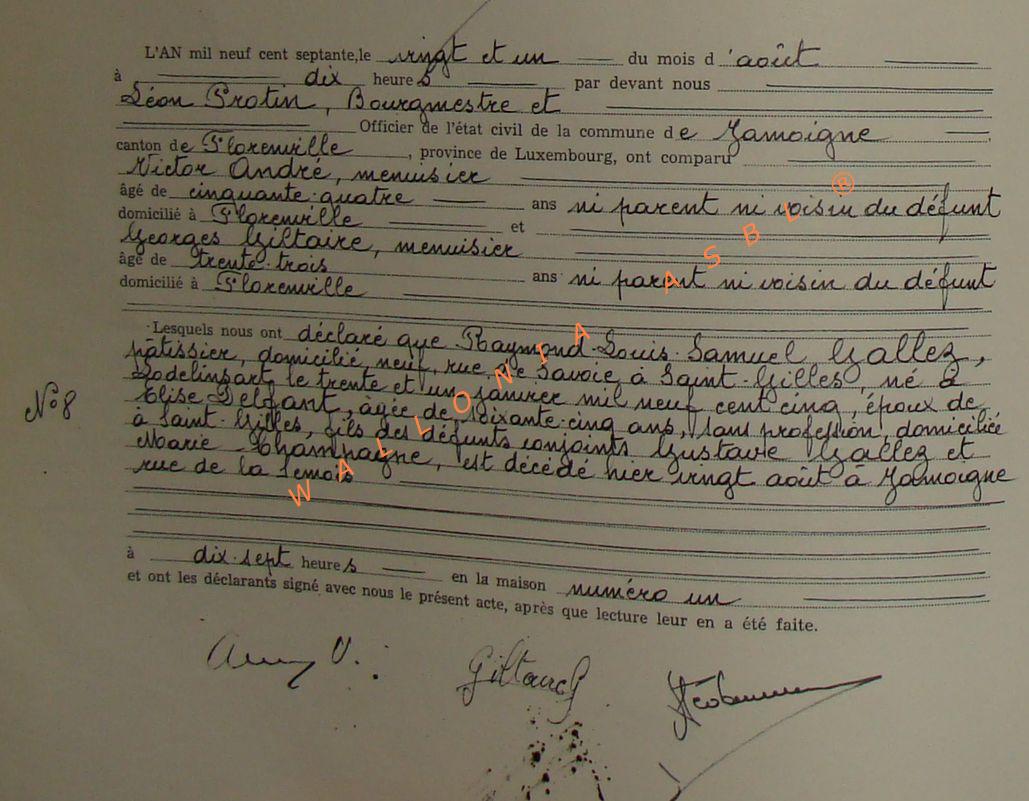 L'AN mil neuf cent septante, le vingt et un du mois d'août
à dix heures par devant nous
Léon Protin, Bourgmestre et
Officier de l'état civil de la commune de Jamoigne
canton de Florenville, province de Luxembourg, ont comparu
Victor André, menuisier
âgé de cinquante-quatre ans ni parent ni voisin du défunt
domicilié à Florenville et
Georges Giltaire, menuisier
âgé de trente-trois ans ni parent ni voisin du défunt
domicilié à Florenville
Lesquels nous ont déclaré que Raymond-Louis-Samuel Gallez,
pâtissier, domicilié, neuf, rue de Savoie, à Saint-Gilles, né à
Lodelinsart, le trente et un janvier mil neuf cent cinq, époux de
Elise, âgée de soixante-cinq ans, sans profession, domiciliée
N°8
à Saint-Gilles, fils des défunts conjoints Gustave Gallez et
Marie Champagne, est décédé hier vingt août à Jamoigne
rue de la Semois
à dix-sept heures en la maison numéro un
et ont les déclarants signé avec nous le présent acte, après que lecture leur en a été faite.
V.
WALLONIA ASBL ®